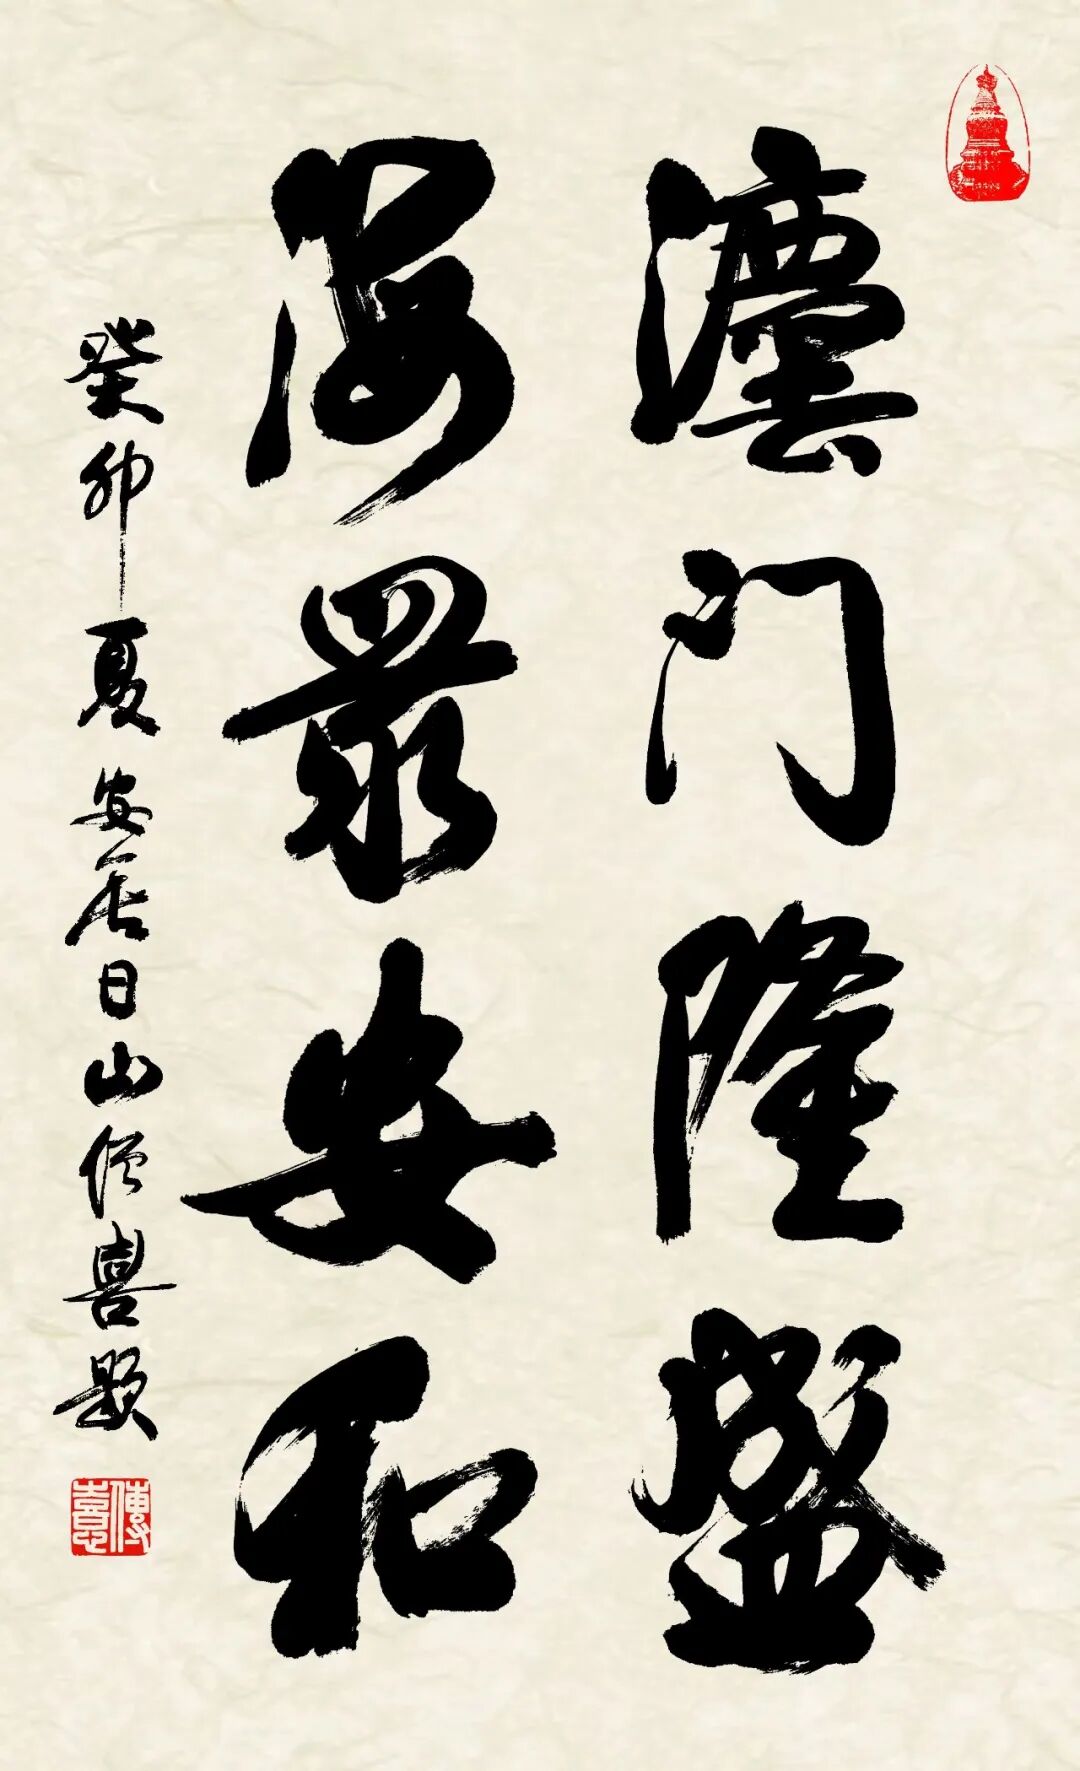 灋门隆盛
海眾安和
癸卯夏安居日山僧喜题
傳憙